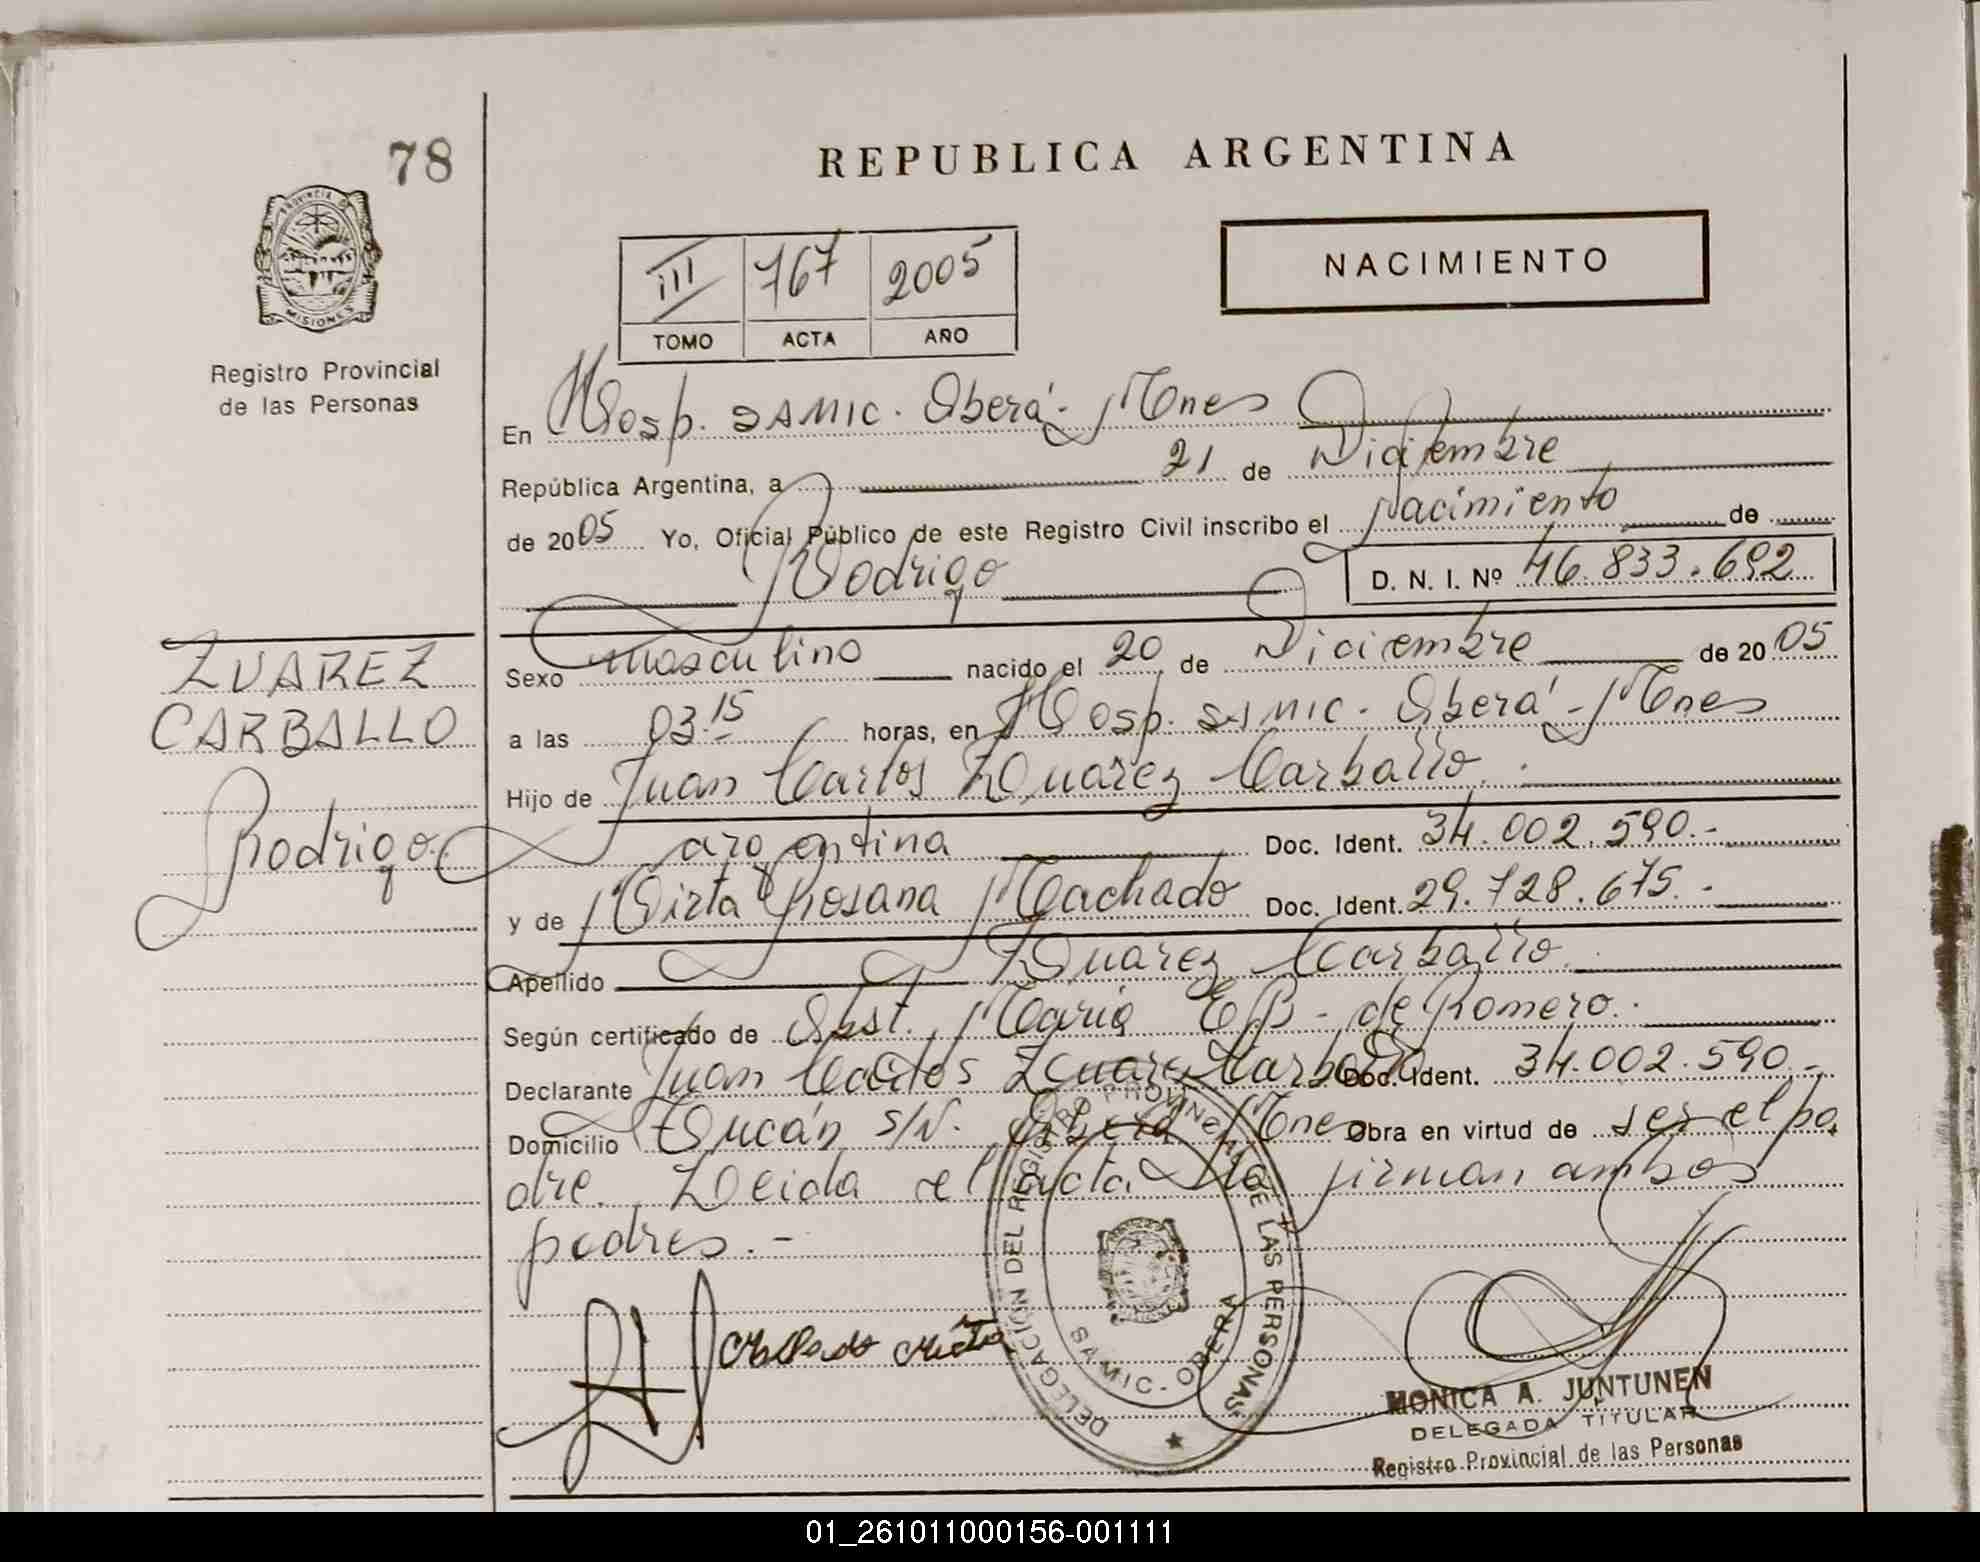 78
REPUBLICA ARGENTINA
PROVINCIA DE
MISIONES
Registro Provincial
de las Personas
III 767 2005
TOMO ACTA AÑO
NACIMIENTO
En Hosp. SAMIC. Oberá - Mnes
República Argentina, a 21 de Diciembre
de 2005 Yo, Oficial Público de este Registro Civil inscribo el Nacimiento de
Rodrigo D. N. I. Nº 46.833.692
ZUAREZ
CARBALLO
Rodrigo
Sexo masculino nacido el 20 de Diciembre de 2005
a las 03.15 horas, en Hosp. SAMIC. Oberá - Mnes
Hijo de Juan Carlos Zuarez Carballo.
argentina Doc. Ident. 34.002.590.-
y de Mirta Rosana Machado Doc. Ident. 29.728.675.-
Apellido Zuarez Carballo.
Según certificado de Obst. María de Romero.
Declarante Juan Carlos Zuarez Carballo Doc. Ident. 34.002.590.-
Domicilio Tucán s/N. Oberá Mnes Obra en virtud de ser el pa
dre. Leida el acta la firman ambos
padres.-
DELEGACIÓN DEL REGISTRO PROVINCIAL DE LAS PERSONAS
SAMIC - OBERA
MONICA A. JUNTUNEN
DELEGADA TITULAR
Registro Provincial de las Personas
01_261011000156-001111